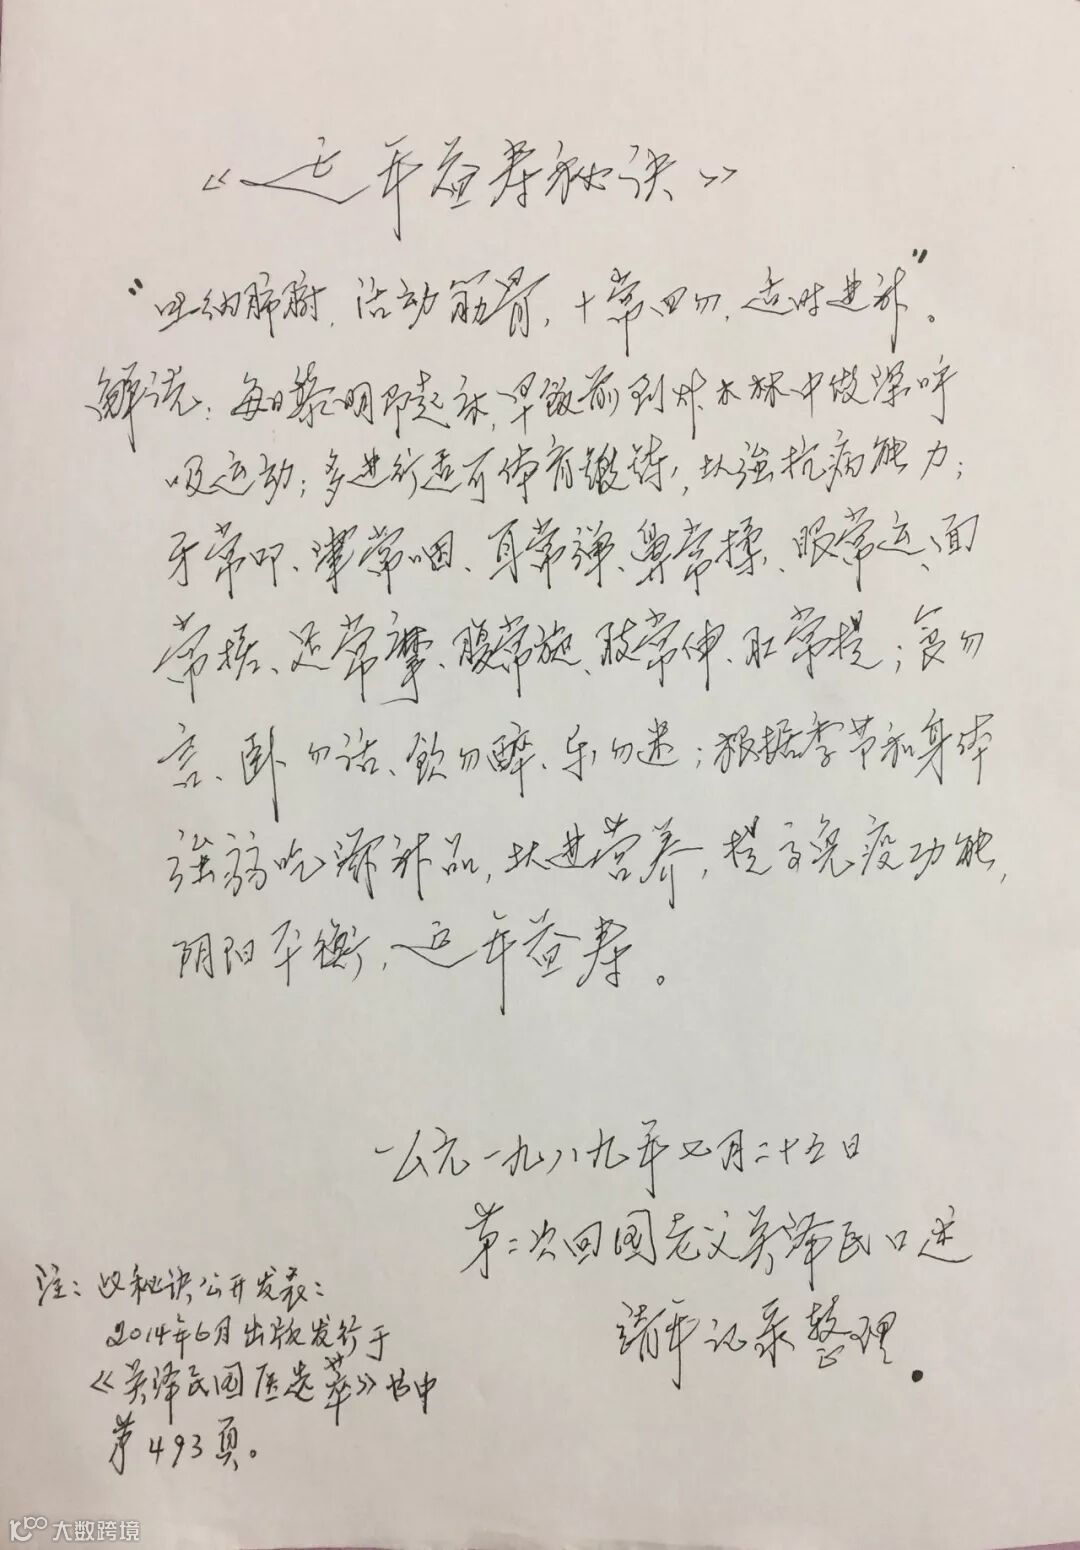 《延年益寿秘诀》
“吐纳肺腑,活动筋骨,十常四勿,适时进补”。
解说:每日黎明即起床,早饭前到 木林中做深呼
吸运动;多进行适可体育锻鍊,以強抗病能力;
牙常叩、津常咽、耳常弹、鼻常揉、眼常运、面
常搓、足常摩、腹常旋、肢常伸、肛常提;食勿
言、卧勿话、飲勿醉、乐勿迷;根据季节和身体
強弱吃 补品,以进营养,提高免疫功能,
阴阳平衡,延年益寿。
公元一九八九年七月二十五日
第二次回国老父吴泽民口述
靖平记录整理.
注:此秘诀公开发表:
2014年6月出版发行于
《吴泽民国医选萃》书中
第493頁。
大数跨境